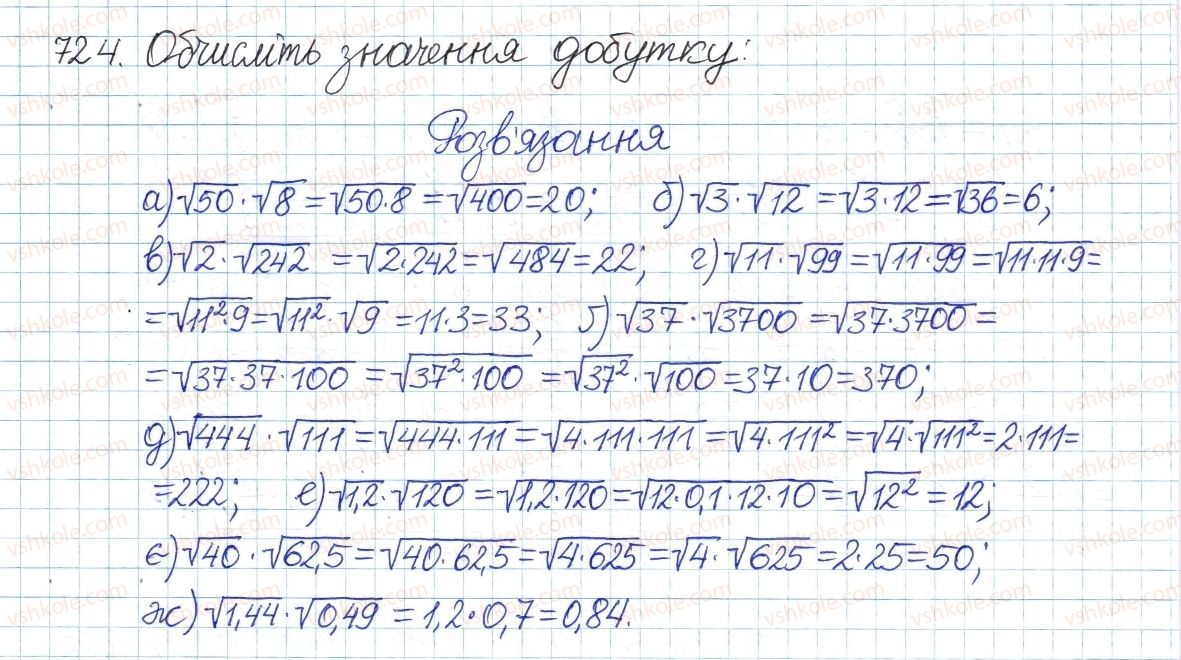 724. Обчисліть значення добутку:
Розв'язання
а) √50 · √8 = √50·8 = √400 = 20; б) √3 · √12 = √3·12 = √36 = 6;
в) √2 · √242 = √2·242 = √484 = 22; г) √11 · √99 = √11·99 = √11·11·9 =
= √11²·9 = √11² · √9 = 11·3 = 33; ґ) √37 · √3700 = √37·3700 =
= √37·37·100 = √37²·100 = √37² · √100 = 37·10 = 370;
д) √444 · √111 = √444·111 = √4·111·111 = √4·111² = √4·√111² = 2·111 =
= 222; е) √1,2 · √120 = √1,2·120 = √12·0,1·12·10 = √12² = 12;
є) √40 · √62,5 = √40·62,5 = √4·625 = √4 · √625 = 2·25 = 50;
ж) √1,44 · √0,49 = 1,2·0,7 = 0,84.